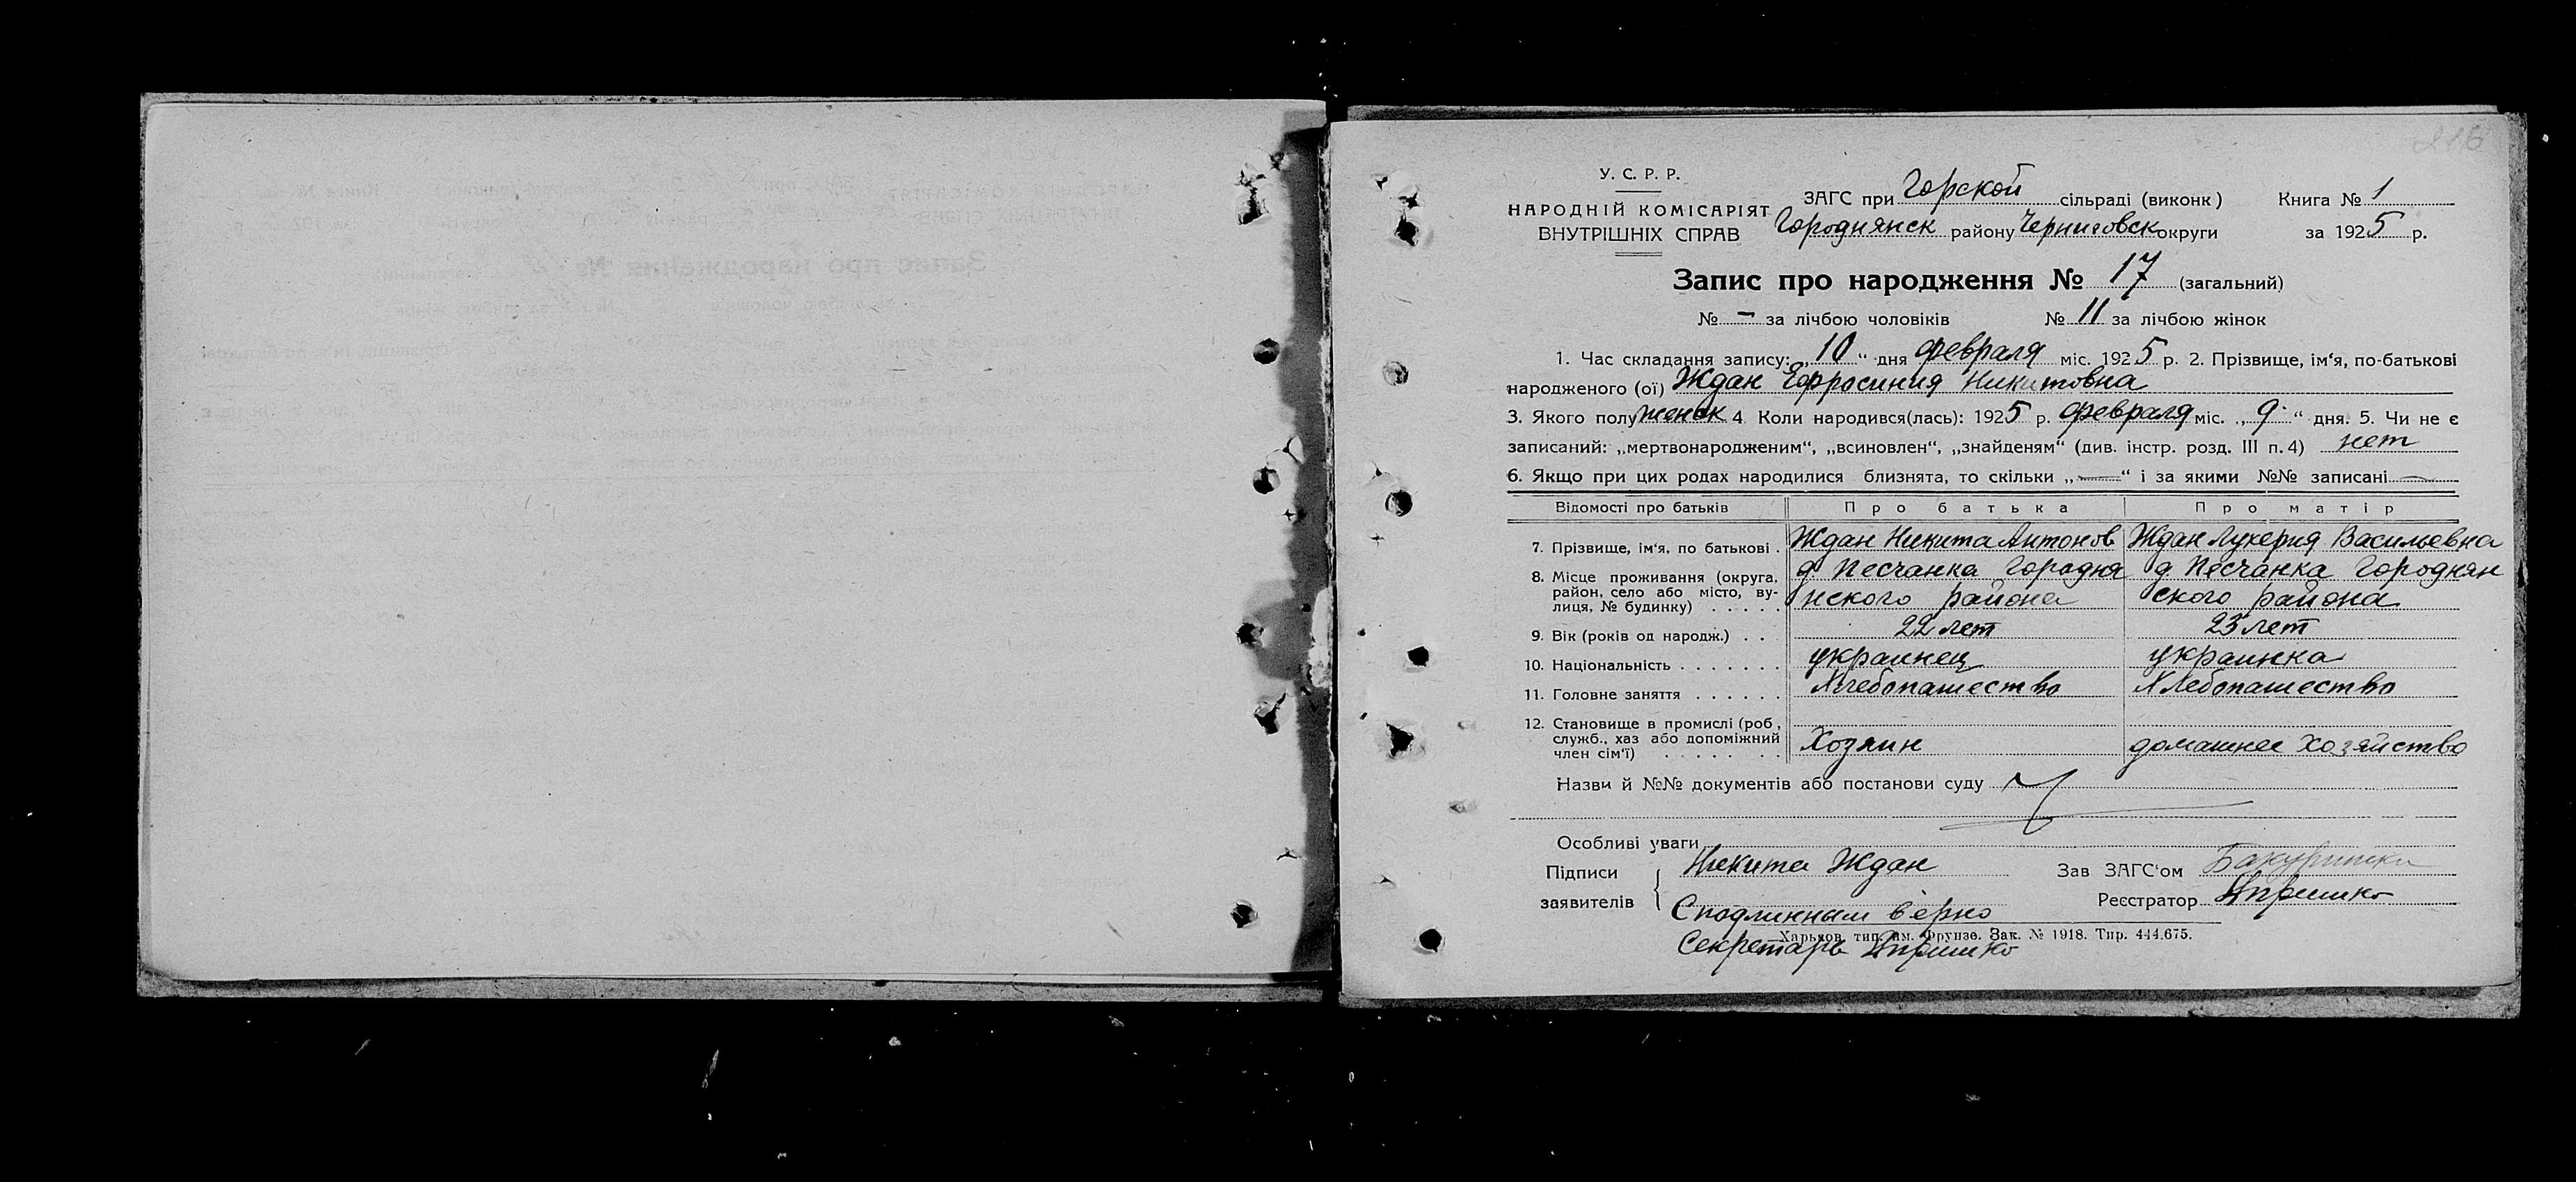 У. С. Р. Р.
НАРОДНІЙ КОМІСАРІЯТ
ВНУТРІШНІХ СПРАВ
ЗАГС при Горской сільраді (виконк) Книга № 1
Городнянск району Черниговск округи за 1925 р.
Запис про народження № 17 (загальний)
№ - за лічбою чоловіків № 11 за лічбою жінок
1. Час складання запису: „10“ дня февраля міс. 1925 р. 2. Прізвище, ім‘я, по-батькові
народженого (ої) Ждан Ефросиния Никитовна
3. Якого полу женск 4 Коли народився(лась): 1925 р. февраля міс. „9“ дня. 5. Чи не є
записаний: „мертвонародженим“, „всиновлен“, „знайденям“ (див. інстр. розд. III п. 4) нет
6. Якщо при цих родах народилися близнята, то скільки „—“ і за якими №№ записані —
Відомості про батьків Про батька Про матір
7. Прізвище, ім‘я, по батькові . Ждан Никита Антонов Ждан Лукерия Васильевна
8. Місце проживання (округа, район, село або місто, вулиця, № будинку) . . . . . д Песчанка Городня д Песчанка Городнян
нского района ского района
9. Вік (років од народж.) . . 22 лет 23 лет
10. Національність . . . . . . . украинец украинка
11. Головне заняття . . . . . . Хлебопашество Хлебопашество
12. Становище в промислі (роб, служб., хаз або допоміжний член сім‘ї) . . . . . . . Хозяин домашнее хозяйство
Назви й №№ документів або постанови суду
Особливі уваги
Підписи Никита Ждан Зав ЗАГС‘ом
заявителів Реєстратор
С подлинным верно
Харьков, тип. им. Фрунзе. Зак. № 1918. Тир. 444.675.
Секретарь